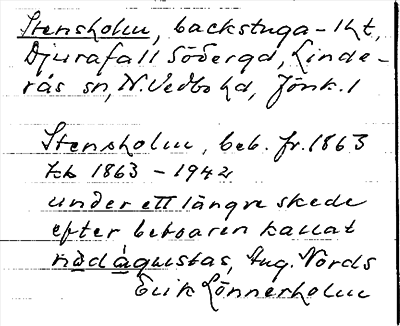 Stensholm, backstuga - 1ht,
Djurafall Söderg d, Linde-
rås sn, N. Vedbo hd, Jönk. l
Stensholm, beb. fr. 1863
kb 1863 - 1942
under ett längre skede
efter beboaren kallat
Erik Lönnerholm